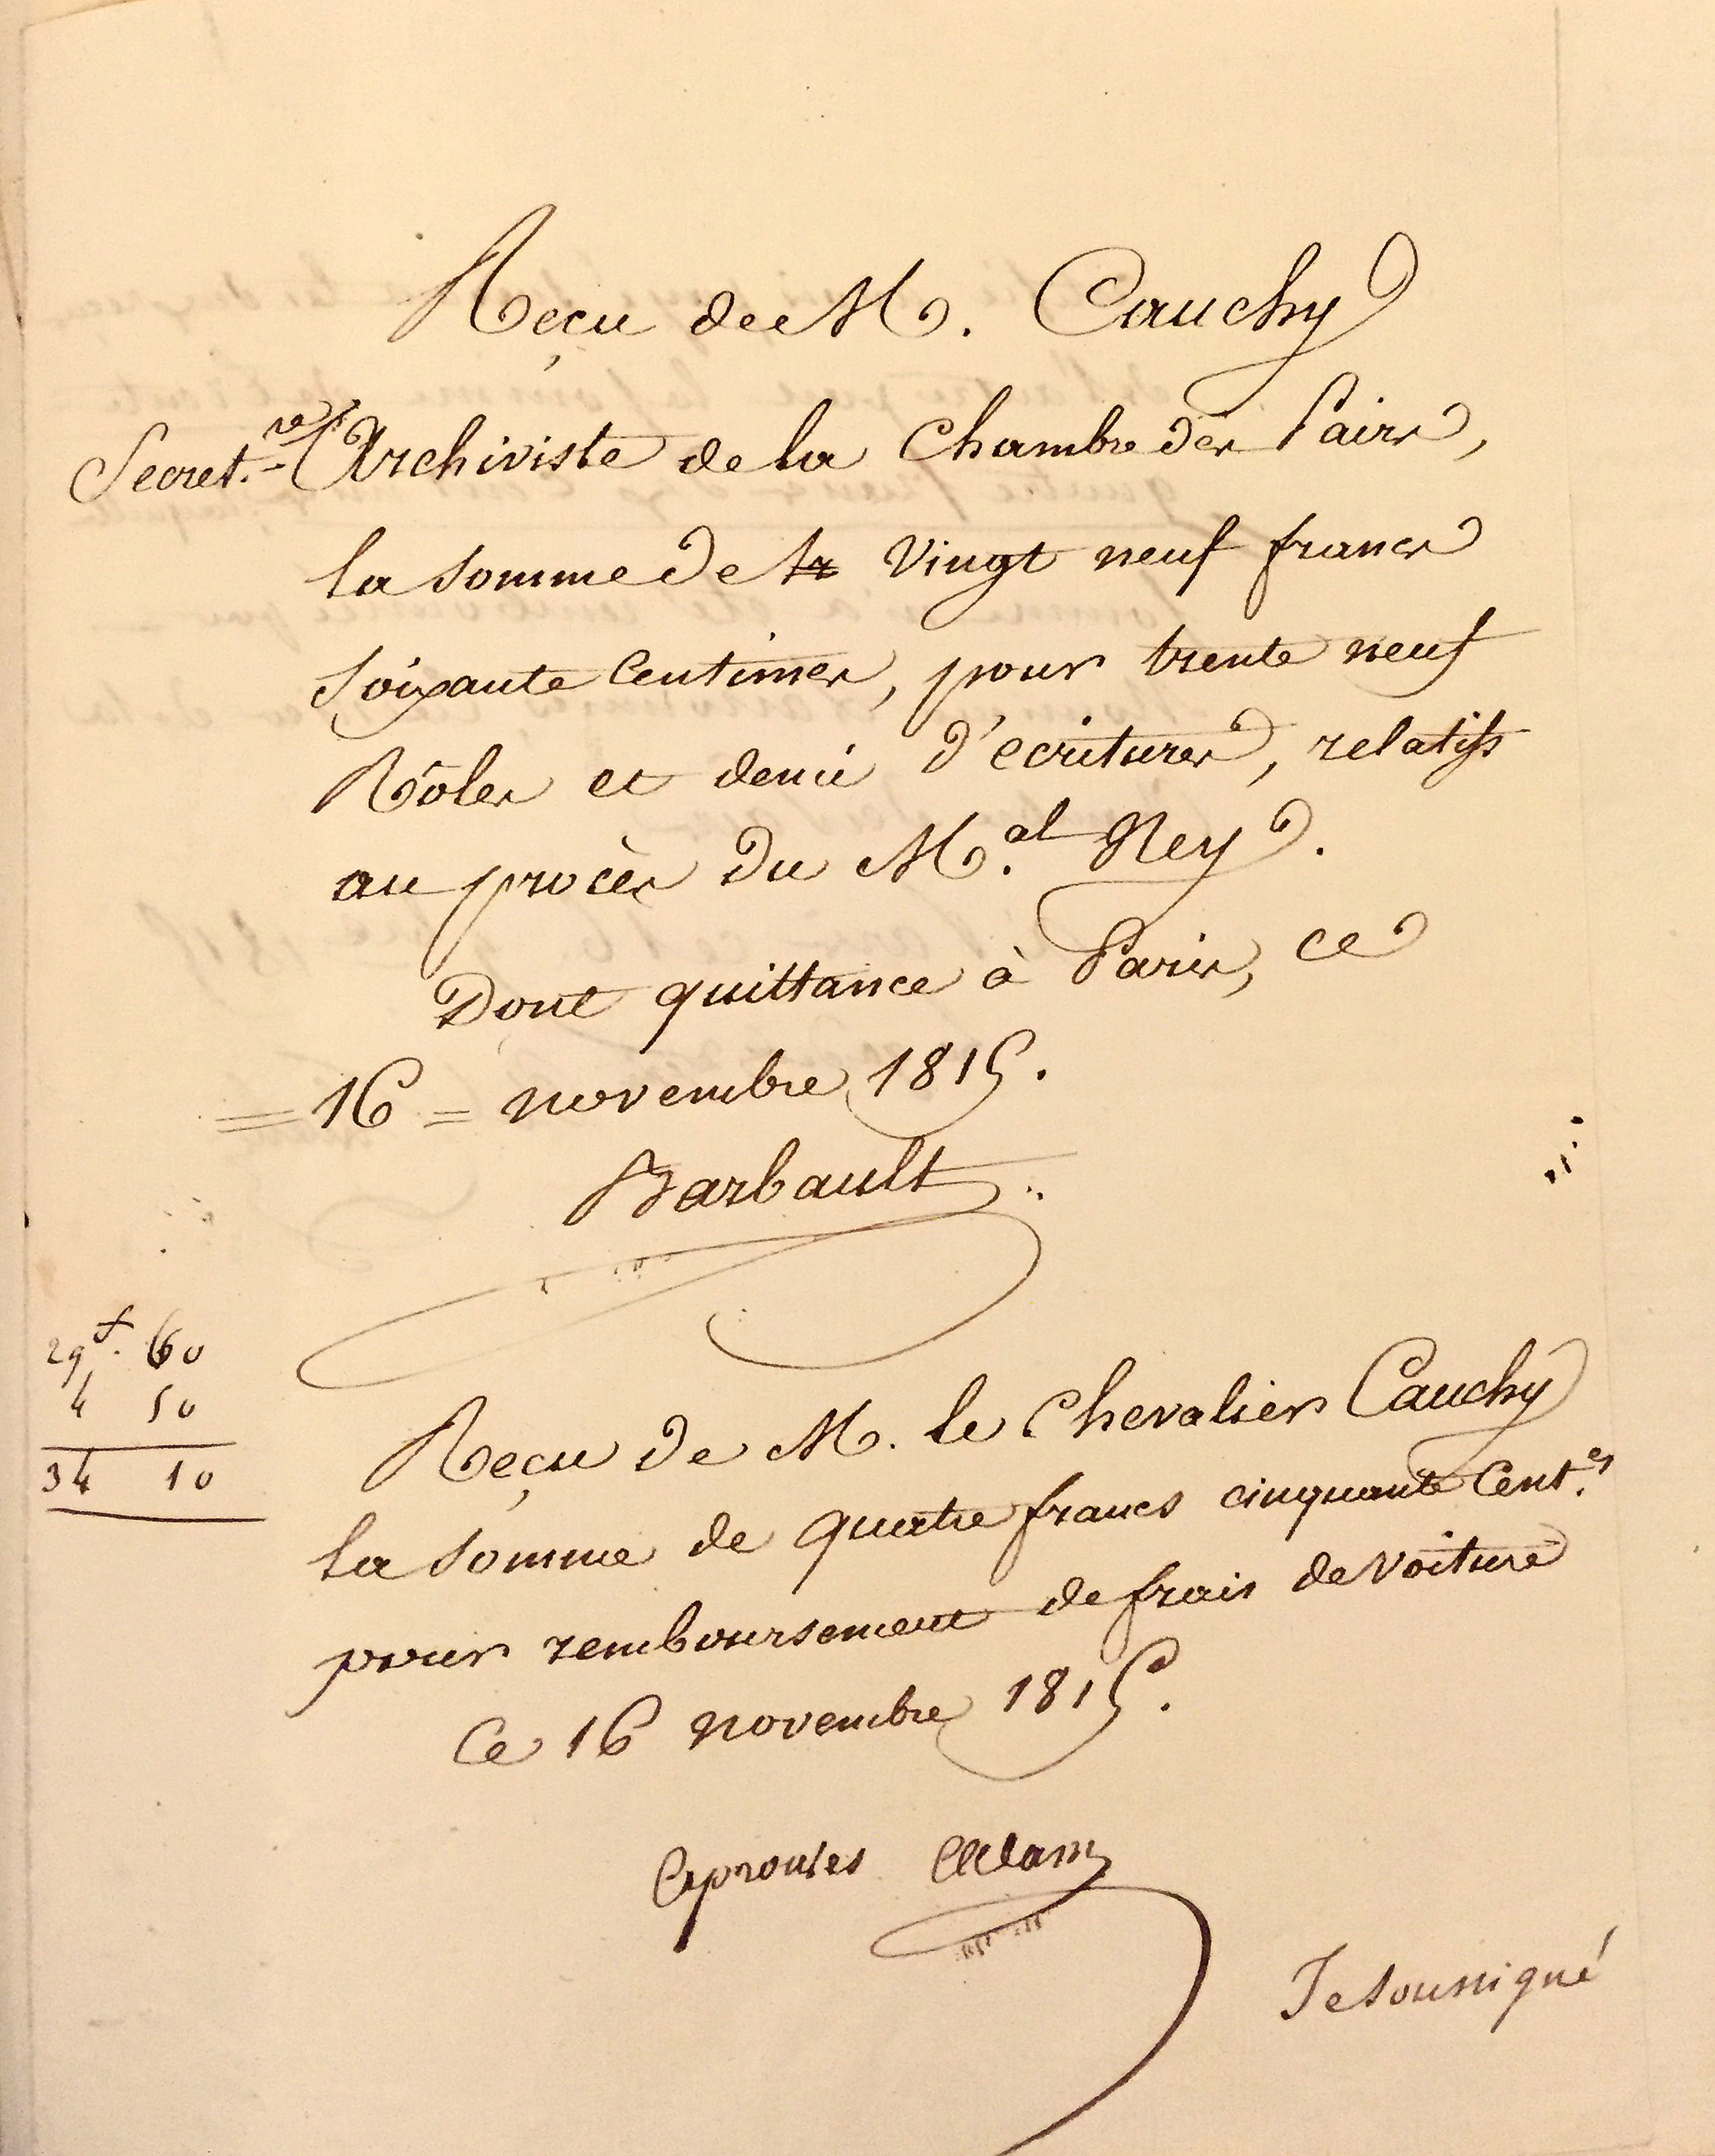 Reçu de M. Cauchy
Secret.re Archiviste de la Chambre des Pairs,
la somme de tr Vingt neuf francs
soixante Centimes, pour trente neuf
Rôles et demi d'ecritures, relatifs
au procès du M.al Ney.
Dont quittance à Paris, ce
= 16 = novembre 1815.
Barbault
29f. 60
4 50
34 10
Reçu de M. le Chevalier Cauchy
la somme de quatre francs cinquante Cent.es
pour remboursement de frais de Voiture
Ce 16 novembre 1815.
Adam
Je soussigné